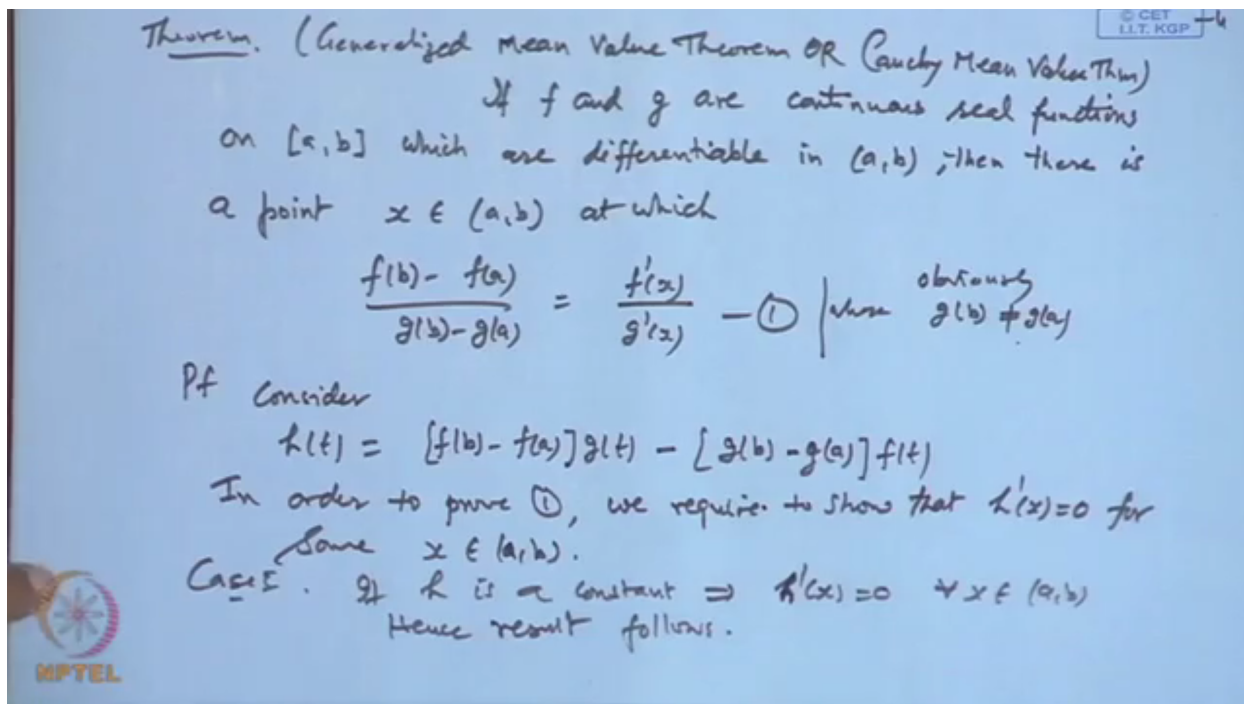 © CET
I.I.T. KGP
Theorem. (Generalized Mean Value Theorem OR Cauchy Mean Value Thm)
If f and g are continuous real functions
on [a,b] which are differentiable in (a,b), then there is
a point x ∈ (a,b) at which
(f(b) - f(a))/(g(b) - g(a)) = f'(x)/g'(x) - ① | where obviously g(b) ≠ g(a)
Pf Consider
h(t) = [f(b) - f(a)] g(t) - [g(b) - g(a)] f(t)
In order to prove ①, we require to show that h'(x)=0 for
some x ∈ (a,b).
Case I. If h is a constant ⇒ h'(x)=0 ∀ x ∈ (a,b)
Hence result follows.
NPTEL